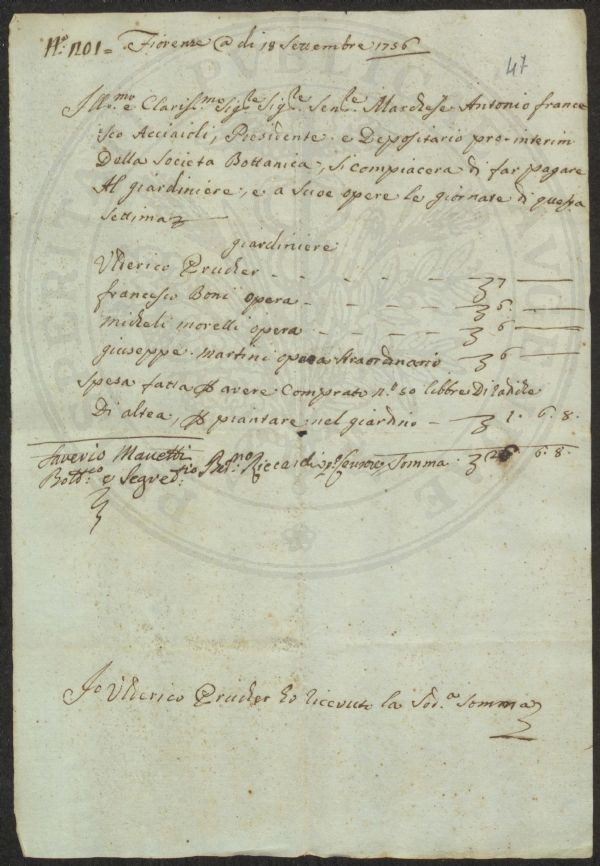 N.º 1201 = Fiorenze @ di 18 Settembre 1756
47
Ill.mo e Clariss.mo Sig.re Sig.re Sen.re Marchese Antonio france
sco Acciaioli, Presidente e Depositario pro-interim
Della Societa Bottanica, si compiacera di far pagare
Al giardiniere, e a suoe opere le giornate di questa
settima
giardiniere
Ulderico Prucker - - - - - - 7 —
francesco Boni opera - - - - - 6. —
Micheli morelli opera - - - - 6 —
giuseppe martini opera straordinario 6 —
Spesa fatta p avere Comprato n.º 50 libbre Di Radiche
Di altea, p piantare nel giardino - 1. 6. 8.
Saverio Manetti
Bott.co e Segret.rio Ber.no Riccardi Somma. 26 6. 8.
Io Ulderico Prucker ho ricevuto la Sod.a Somma